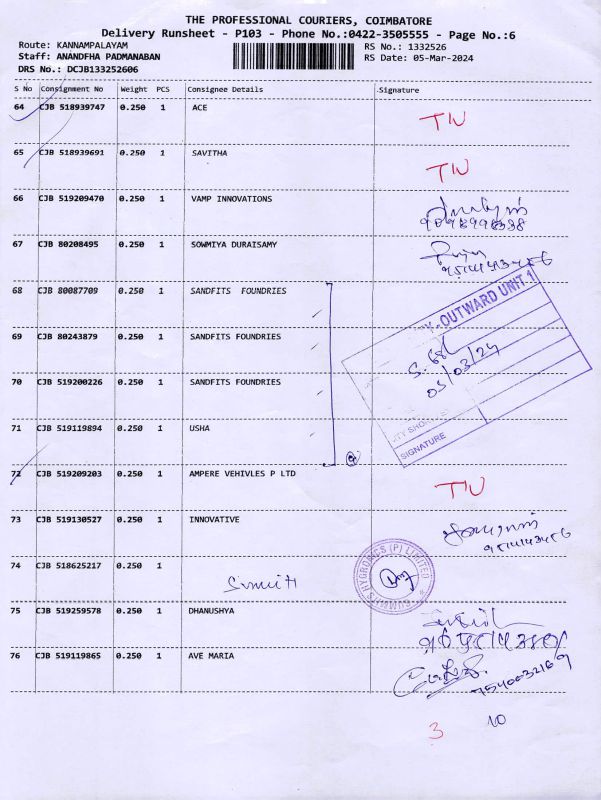 THE PROFESSIONAL COURIERS, COIMBATORE
Delivery Runsheet - P103 - Phone No.:0422-3505555 - Page No.:6
Route: KANNAMPALAYAM
RS No.: 1332526
Staff: ANANDFHA PADMANABAN
RS Date: 05-Mar-2024
DRS No.: DCJB133252606
S No Consignment No Weight PCS Consignee Details Signature
64 CJB 518939747 0.250 1 ACE
65 CJB 518939691 0.250 1 SAVITHA
66 CJB 519209470 0.250 1 VAMP INNOVATIONS
67 CJB 80208495 0.250 1 SOWMIYA DURAISAMY
68 CJB 80087709 0.250 1 SANDFITS FOUNDRIES
OUTWARD UNIT 1
69 CJB 80243879 0.250 1 SANDFITS FOUNDRIES
05/03/24
70 CJB 519200226 0.250 1 SANDFITS FOUNDRIES
71 CJB 519119894 0.250 1 USHA
SIGNATURE
72 CJB 519209203 0.250 1 AMPERE VEHIVLES P LTD
73 CJB 519130527 0.250 1 INNOVATIVE
74 CJB 518625217 0.250 1
SUMMITS HYGRONICS (P) LIMITED
75 CJB 519259578 0.250 1 DHANUSHYA
76 CJB 519119865 0.250 1 AVE MARIA
7540032169
3 10